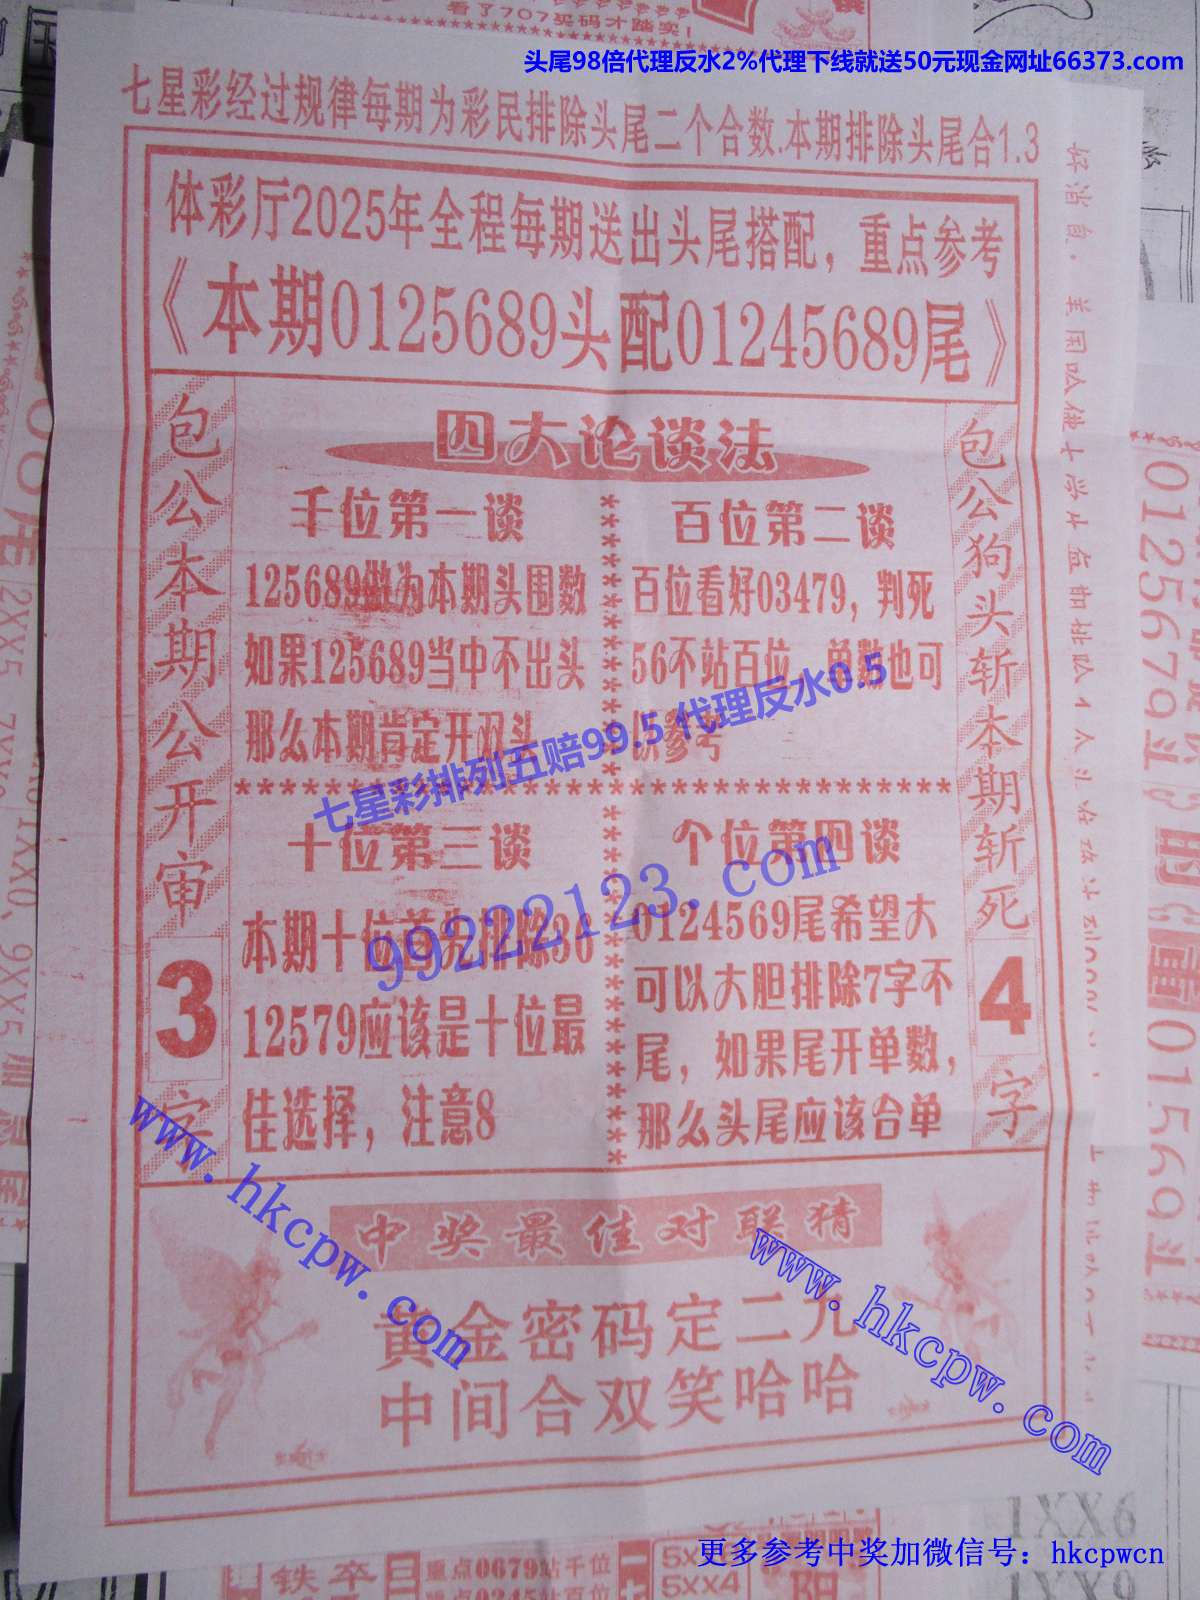 看了707买码才踏实!
头尾98倍代理反水2%代理下线就送50元现金网址66373.com
七星彩经过规律每期为彩民排除头尾二个合数.本期排除头尾合1.3
体彩厅2025年全程每期送出头尾搭配，重点参考
《本期0125689头配01245689尾》
包公本期公开审
3
字
四大论谈法
千位第一谈
125689做为本期头围数
如果125689当中不出头
那么本期肯定开双头
百位第二谈
百位看好03479，判死
56不站百位，单数也可
供参考
十位第三谈
本期十位首先排除36
12579应该是十位最
佳选择，注意8
个位第四谈
0124569尾希望大
可以大胆排除7字不
尾，如果尾开单数，
那么头尾应该合单
包公狗头斩本期斩死
4
字
七星彩排列五赔99.5 代理反水0.5
99222123.com
www.hkcpw.com
www.hkcpw.com
中奖最佳对联猜
黄金密码定二九
中间合双笑哈哈
1XX6
铁卒
重点0679站千位
5XX4
更多参考中奖加微信号：hkcpwcn